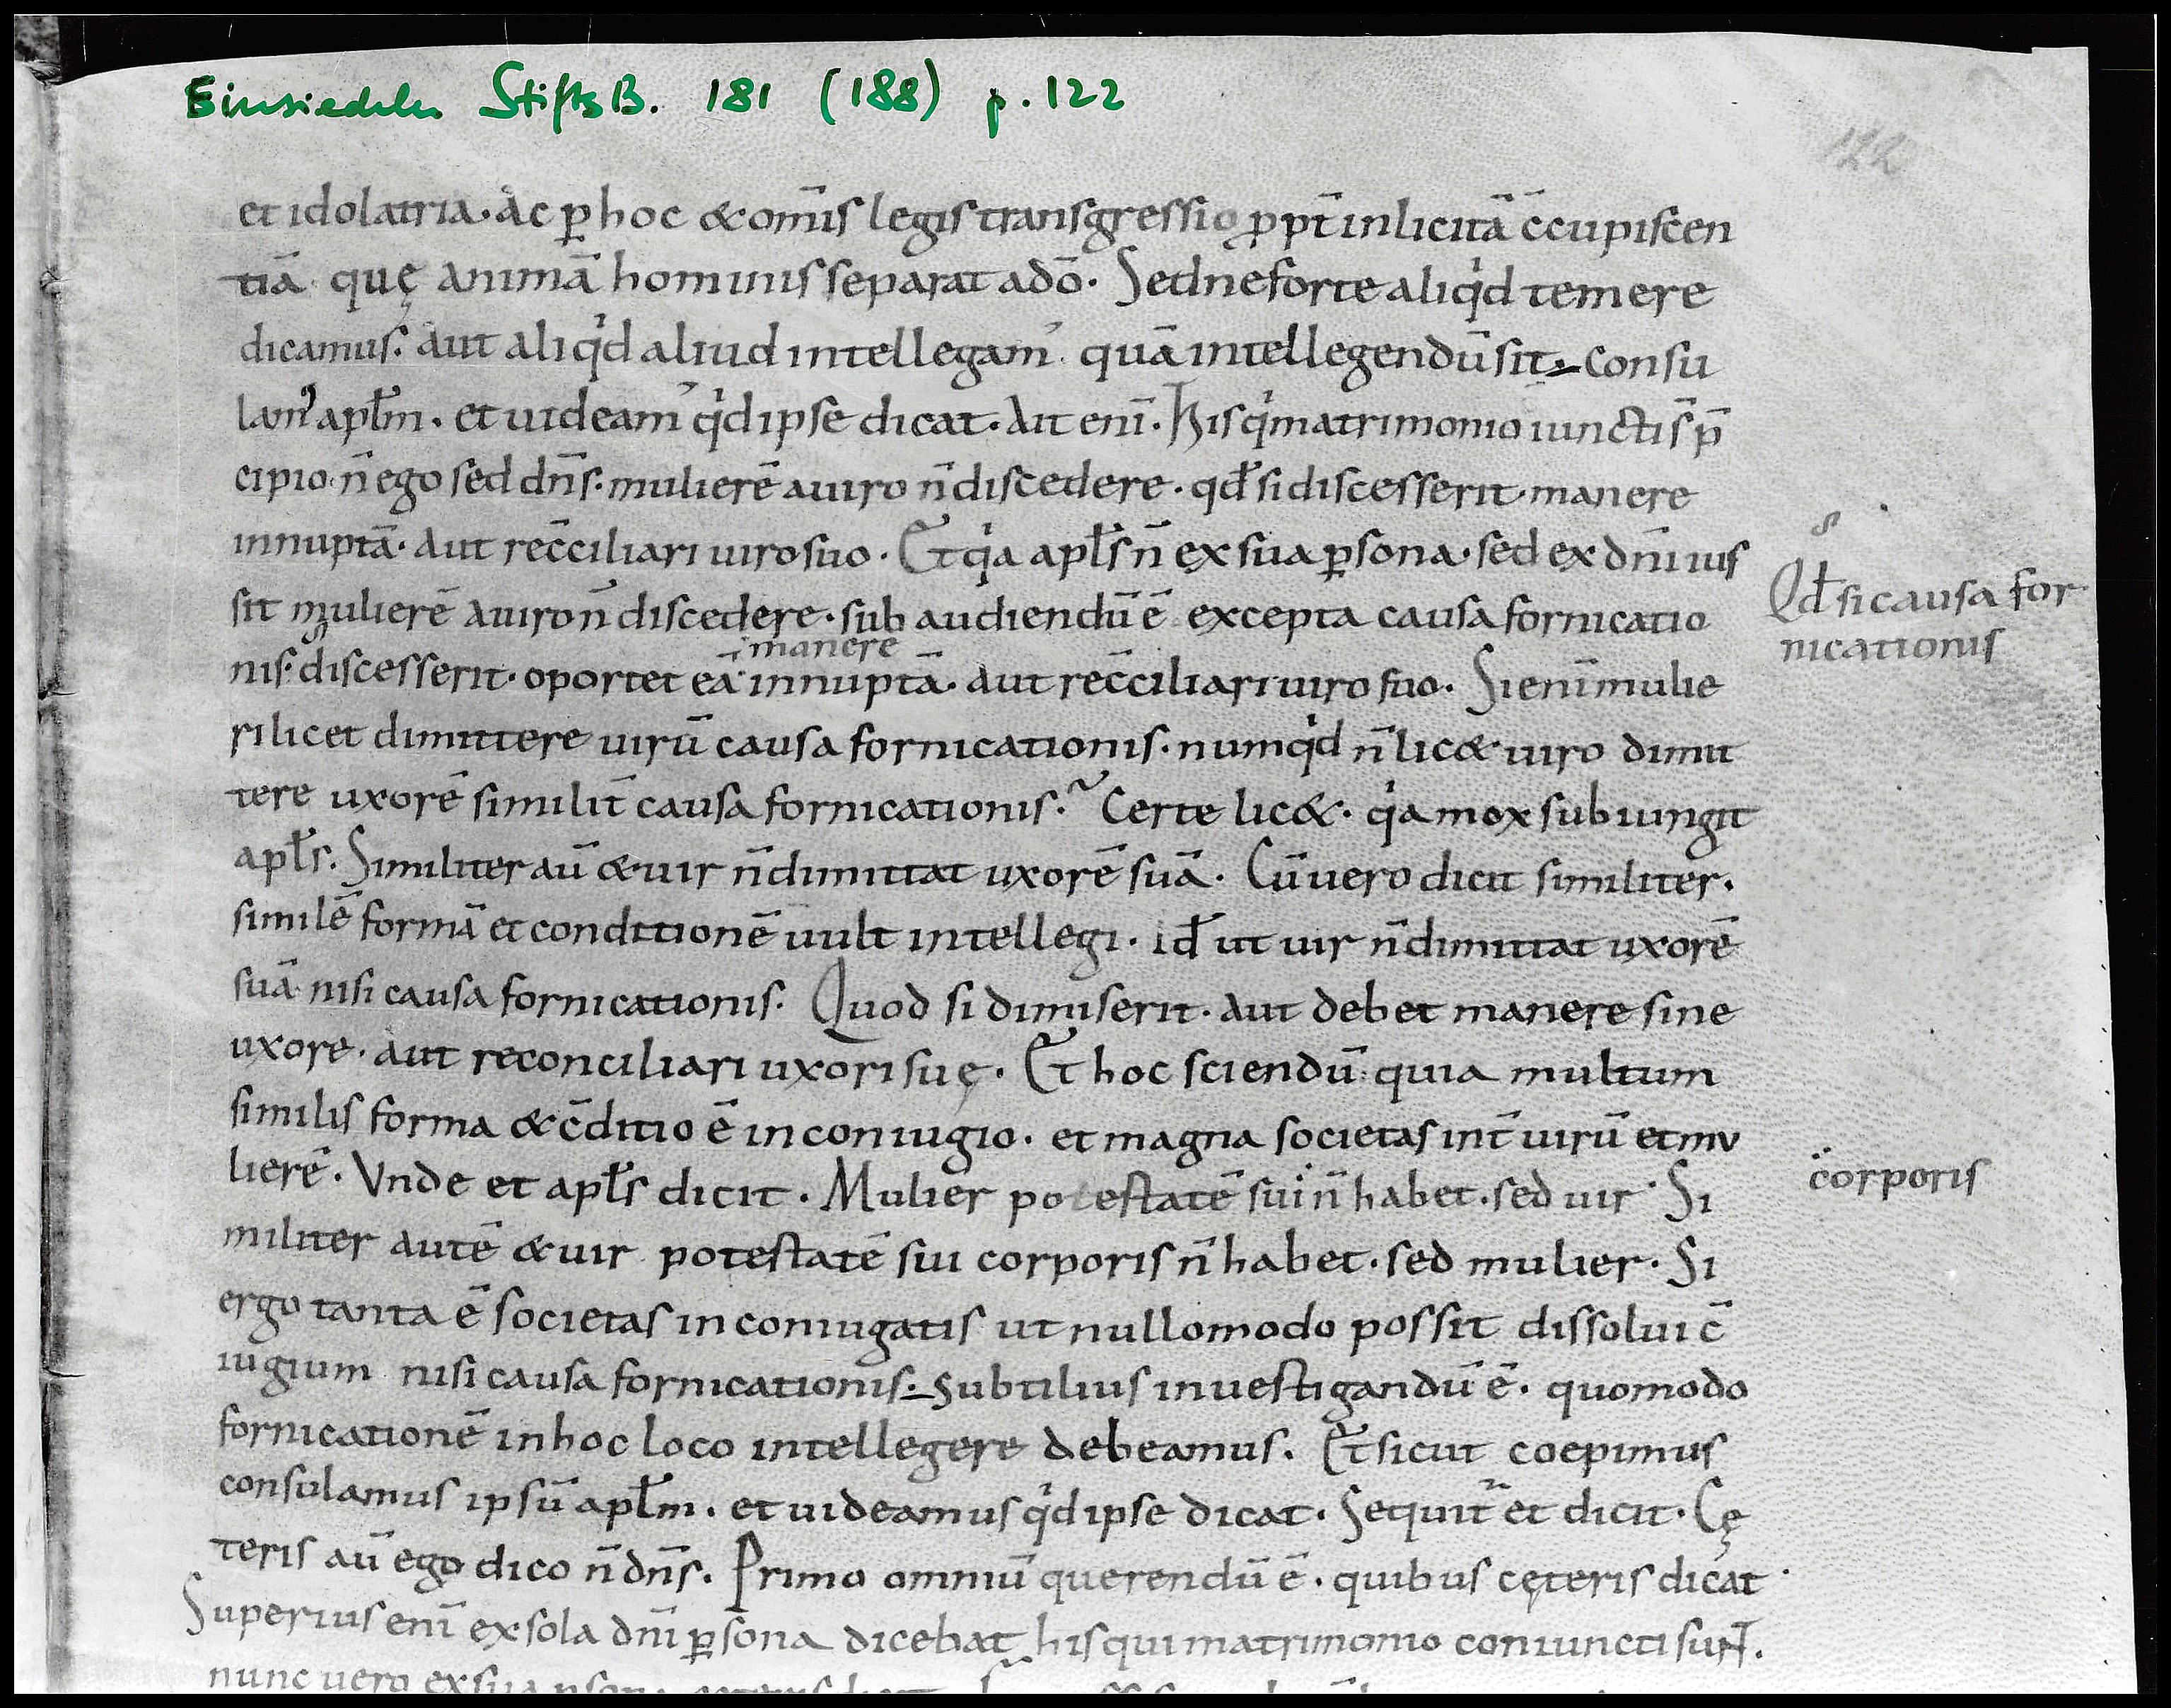 Einsiedeln StiftsB. 181 (188) p. 122
122
et idolatria. Ac ꝑ hoc & om̄is legis transgressio ꝓpt̄ inlicitā c̄cupiscen
tiā quę animā hominis separat a dō. Sed ne forte aliq̇d temere
dicamus. aut aliq̇d aliud intellegam᾽ quā intellegendū sit. Consu
lam᾽ apłm. et uideam᾽ q̇d ipse dicat. Ait enī. His q̇ matrimonio iuncti s̄ p̄
cipio n̄ ego sed dn̄s. mulierē a uiro n̄ discedere. qđ si discesserit manere
innuptā. aut rec̄ciliari uiro suo. Et q̇a apłs n̄ ex sua ꝑsona. sed ex dn̄i ius
sit mulierē a uiro n̄ discedere. sub audiendū ē excepta causa fornicatio
Qđ si causa for
nicationis
manere
nis. discesserit. oportet eā innuptā. aut rec̄ciliari uiro suo. Si enī mulie
ri licet dimittere uirū causa fornicationis. numq̇d n̄ lic& uiro dimit
tere uxorē similit̄ causa fornicationis. Certe lic&. q̇a mox subiungit
apłs. Similiter aū & uir n̄ dimittat uxorē suā. Cū uero dicit similiter.
similē formā et conditionē uult intellegi. iđ ut uir n̄ dimittat uxorē
suā nisi causa fornicationis. Quod si dimiserit. aut debet manere sine
uxore. aut reconciliari uxori suę. Et hoc sciendū quia multum
similis forma & c̄ditio ē in coniugio. et magna societas int̄ uirū et mu
lierē. Vnde et apłs dicit. Mulier potestatē sui n̄ habet. sed uir. Si
corporis
militer autē & uir potestatē sui corporis n̄ habet. sed mulier. Si
ergo tanta ē societas in coniugatis ut nullomodo possit dissolui c̄
iugium nisi causa fornicationis. Subtilius inuestigandū ē. quomodo
fornicationē in hoc loco intellegere debeamus. Et sicut coepimus
consulamus ipsū apłm. et uideamus q̇d ipse dicat. Sequit᷑ et dicit. Cę
teris aū ego dico n̄ dn̄s. Primo omniū querendū ē. quibus cęteris dicat.
Superius enī ex sola dn̄i ꝑsona dicebat his qui matrimonio coniuncti sunt.
nunc uero ex sua